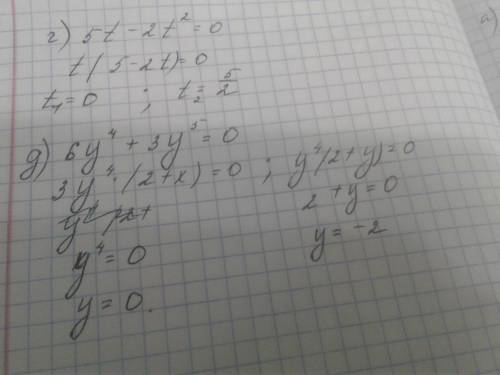 г) 5t - 2t² = 0
t(5-2t)=0
t₁=0 ; t₂=5/2
д) 6y⁴ + 3y⁵ = 0
3y⁴ · (2+x) = 0 ; y⁴(2+y)=0
y⁴ = 0
2 + y = 0
y = 0.
y = -2